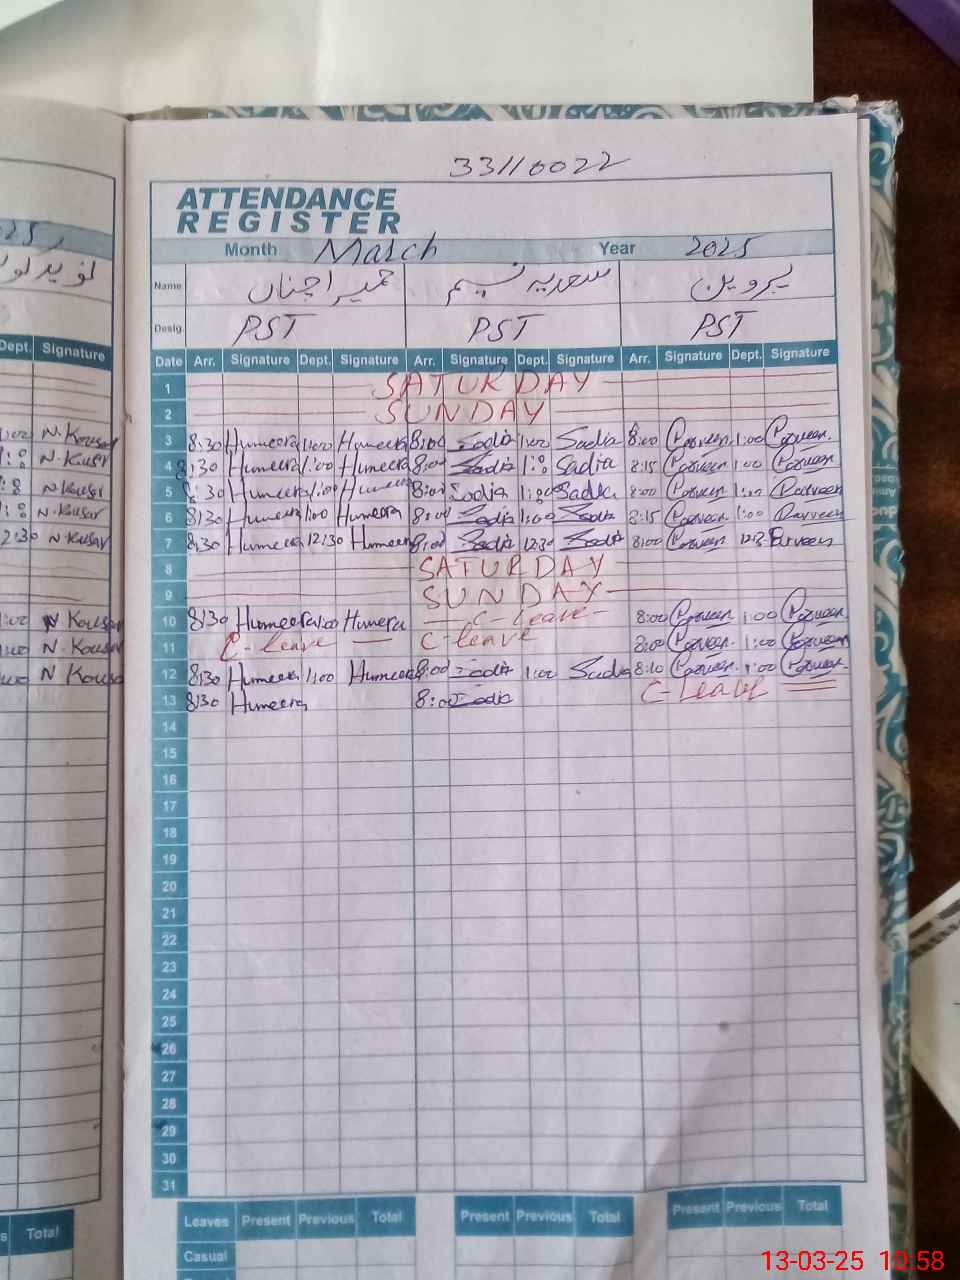 33110022
ATTENDANCE
REGISTER
Month March Year 2025
Name حمیرا چناں سعدیہ نسیم پروین
Desig. PST PST PST
Dept. Signature
Date Arr. Signature Dept. Signature Arr. Signature Dept. Signature Arr. Signature Dept. Signature
1 SATURDAY
2 SUNDAY
1:00 N. Kousar 3 8:30 Humeera 1:00 Humeera 8:00 Sadia 1:00 Sadia 8:00 Parveen 1:00 Parveen
N. Kusar 4 8:30 Humeera 1:00 Humeera 8:00 Sadia 1:00 Sadia 8:15 Parveen 1:00 Parveen
N. Kusar 5 8:30 Humeera 1:00 Humeera 8:00 Sadia 1:00 Sadia 8:00 Parveen 1:00 Parveen
N. Kusar 6 8:30 Humeera 1:00 Humeera 8:00 Sadia 1:00 Sadia 8:15 Parveen 1:00 Parveen
2:30 N Kusar 7 8:30 Humeera 12:30 Humeera 8:00 Sadia 12:30 Sadia 8:00 Parveen 12:3 Parveen
8 SATURDAY
9 SUNDAY
:00 N Kousar 10 8:30 Humeera 1:00 Humera C-leave 8:00 Parveen 1:00 Parveen
N. Kousar 11 C-leave C-leave 8:00 Parveen 1:00 Parveen
N Kousa 12 8:30 Humeera 1:00 Humeera 8:00 Sadia 1:00 Sadia 8:10 Parveen 1:00 Parveen
13 8:30 Humeera 8:00 Sadia C-Leave
14
15
16
17
18
19
20
21
22
23
24
25
26
27
28
29
30
31
Total Leaves Present Previous Total Present Previous Total Present Previous Total
Casual
13-03-25 10:58